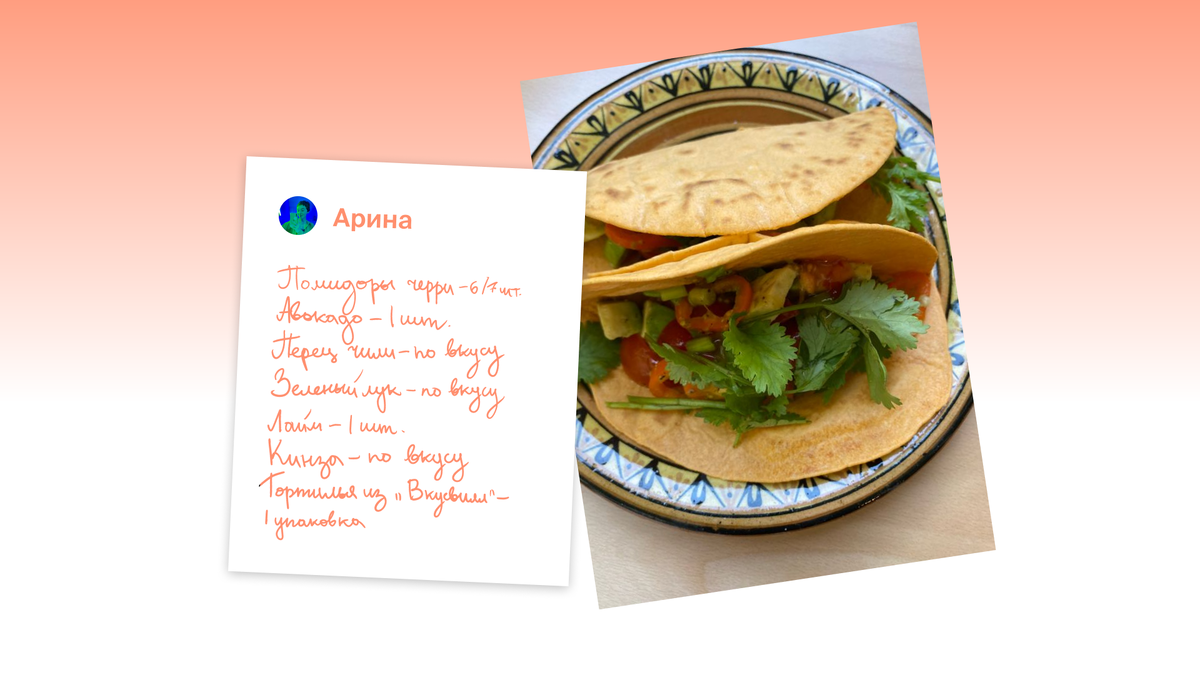 Арина
Помидоры черри – 6/7 шт.
Авокадо – 1 шт.
Перец чили – по вкусу
Зеленый лук – по вкусу
Лайм – 1 шт.
Кинза – по вкусу
Тортилья из „Вкусвилл" –
1 упаковка